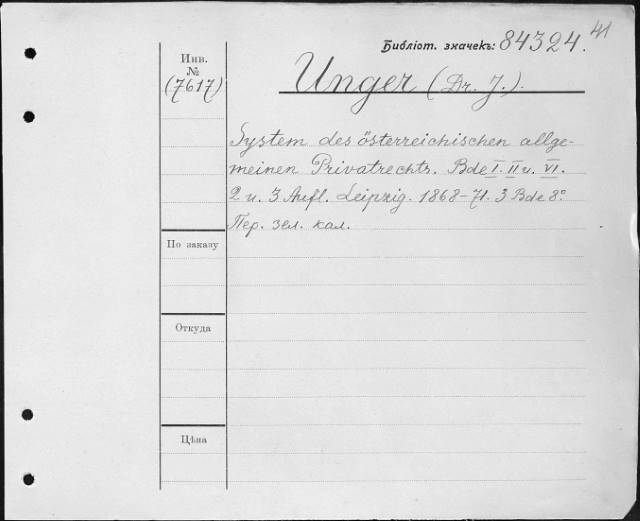 41
Библіот. значекъ: 84324.
Инв.
№
(7617)
Unger (Dr. J.).
System des österreichischen allge-
meinen Privatrechts. Bde I. II u. VI.
2 u. 3 Aufl. Leipzig. 1868-71. 3 Bde 8°.
Пер. зел. кал.
По заказу
Откуда
Цѣна